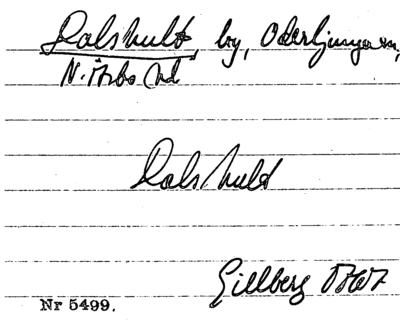 Dalshult, by, Oderljunga sn,
N. Åsbo hd
Dalshuld
Gillberg 1767
Nr 5499.